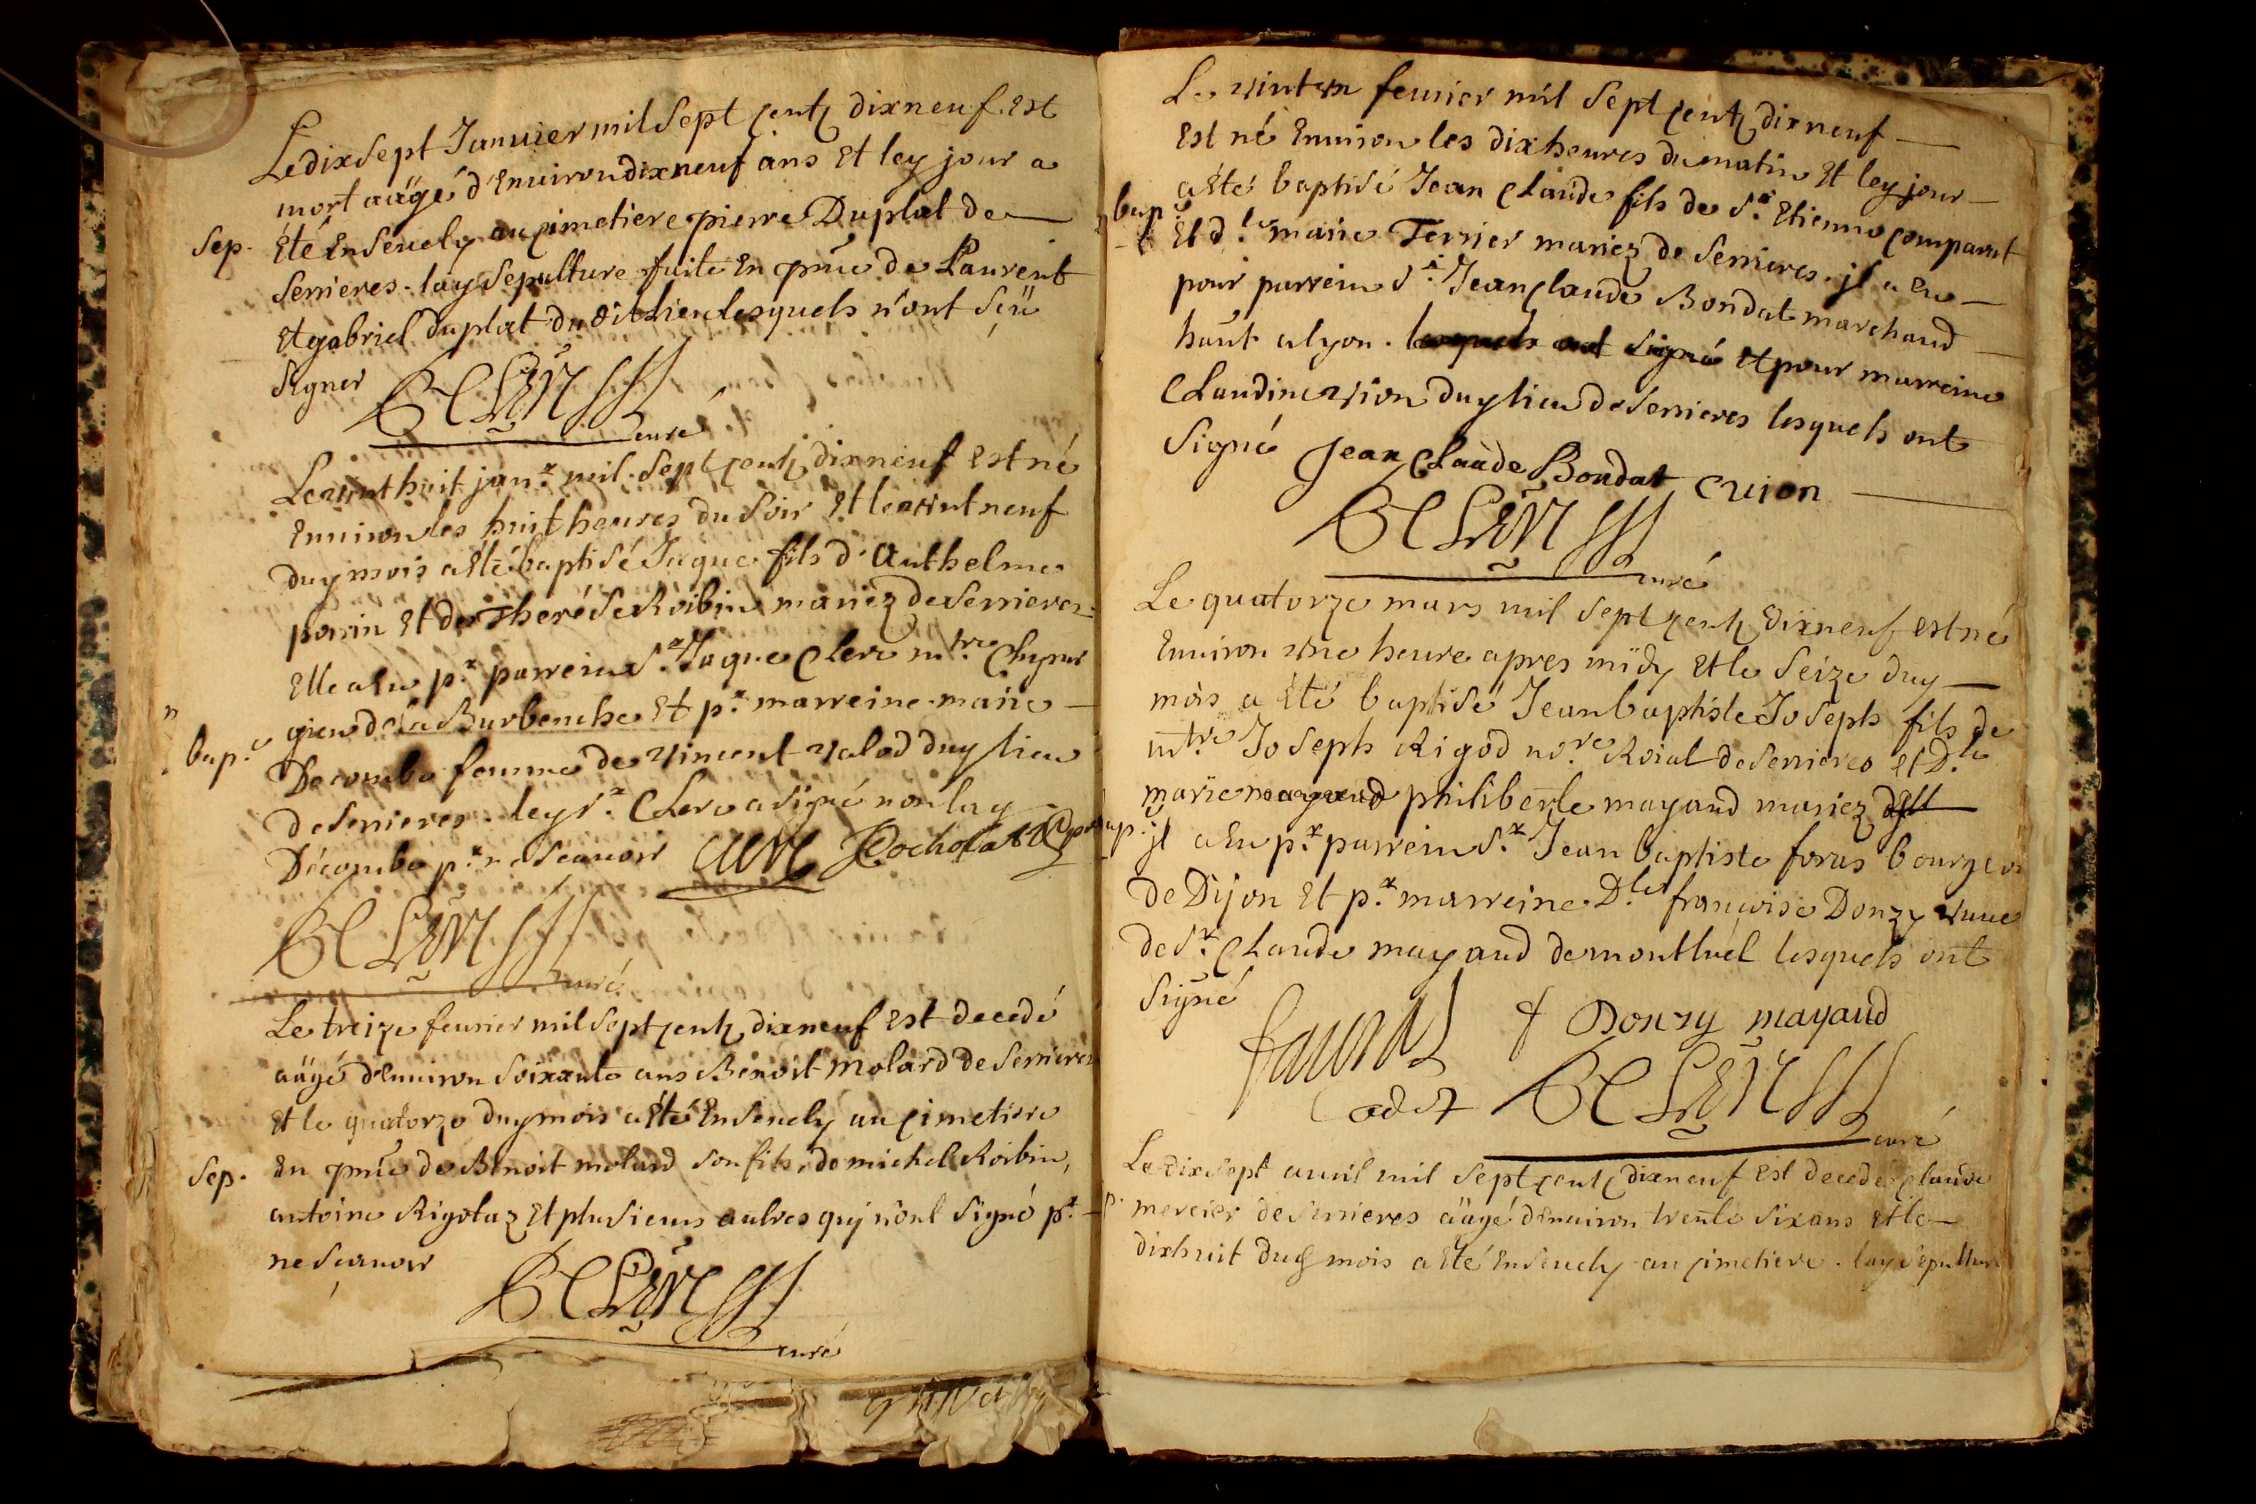 Le dix sept Januier mil sept centz dixneuf est
mort aägé d'enuiron dixneuf ans et ley jour a
Sep.
été enseuely au cimetiere pierre Duplat de
Serrieres. lay sepulture faite en pñce de Laurent
et gabriel duplat dudit lieu lesquels n'ont sçü
signer
curé
Le vint huit jan.r mil sept centz dixneuf est né
enuiron les huit heures du soir et le vint neuf
duy mois a été baptisé Jaque fils d'Anthelme
perrin et de Therése Roibin mariez de Serrieres.
Elle a eu p.r parrein S.r Jaque Clerc m.tre Chyrur
gien de la Burbenche et p.r marreine marie
bap.e
Decombe femme de vincent valod duy lieu
de Serrieres. ley s.r Clerc a signé non lay
Décombe p.r ne scauoir Clerc Cochet
curé
Le treize feurier mil sept centz dixneuf est decedé
aägé d'enuiron soixante ans Benoit Molard de Serrieres
et le quatorze duy mois a été enseuely au cimetiere
Sep.
en pñce de Benoit molard son fils, de michel Roibin,
antoine Rigotaz et plusieurs autres quj n'ont signé p.r
ne scauoir
curé
Le vint un feurier mil sept centz dixneuf
est né enuiron les dix heures du matin et ley jour
bap.e
a été baptisé Jean Claude fils de S.r Etienne Comparat
et d.le marie Terrier mariez de Serrieres. jl a eu
pour parrein S.r Jean Claude Bondat marchand
haut a lyon. lesquels ont signé et pour marreine
Claudine vion duy lieu de Serrieres lesquels ont
signé Jean Claude Bondat C vion
curé
Le quatorze mars mil sept centz dixneuf est né
enuiron vne heure apres midy et le seize duy
mois a été baptisé Jean baptiste Joseph fils de
m.tre Joseph Rigod no.re Roial de Serrieres et D.le
marie mayaud philiberte mayaud mariez
jl a eu p.r parrein S.r Jean baptiste foras bourgeoi
de Dijon et p.r marreine D.le françoise Donzy vuue
de S.r Claude mayaud de montluel lesquels ont
signé
f Donzy mayaud
cadet
curé
Le dix sept auril mil sept centz dixneuf est decedé Claude
mercier de Serrieres aägé d'enuiron trente six ans et le
dixhuit duy mois a été enseuely au cimetiere. lay sepulture